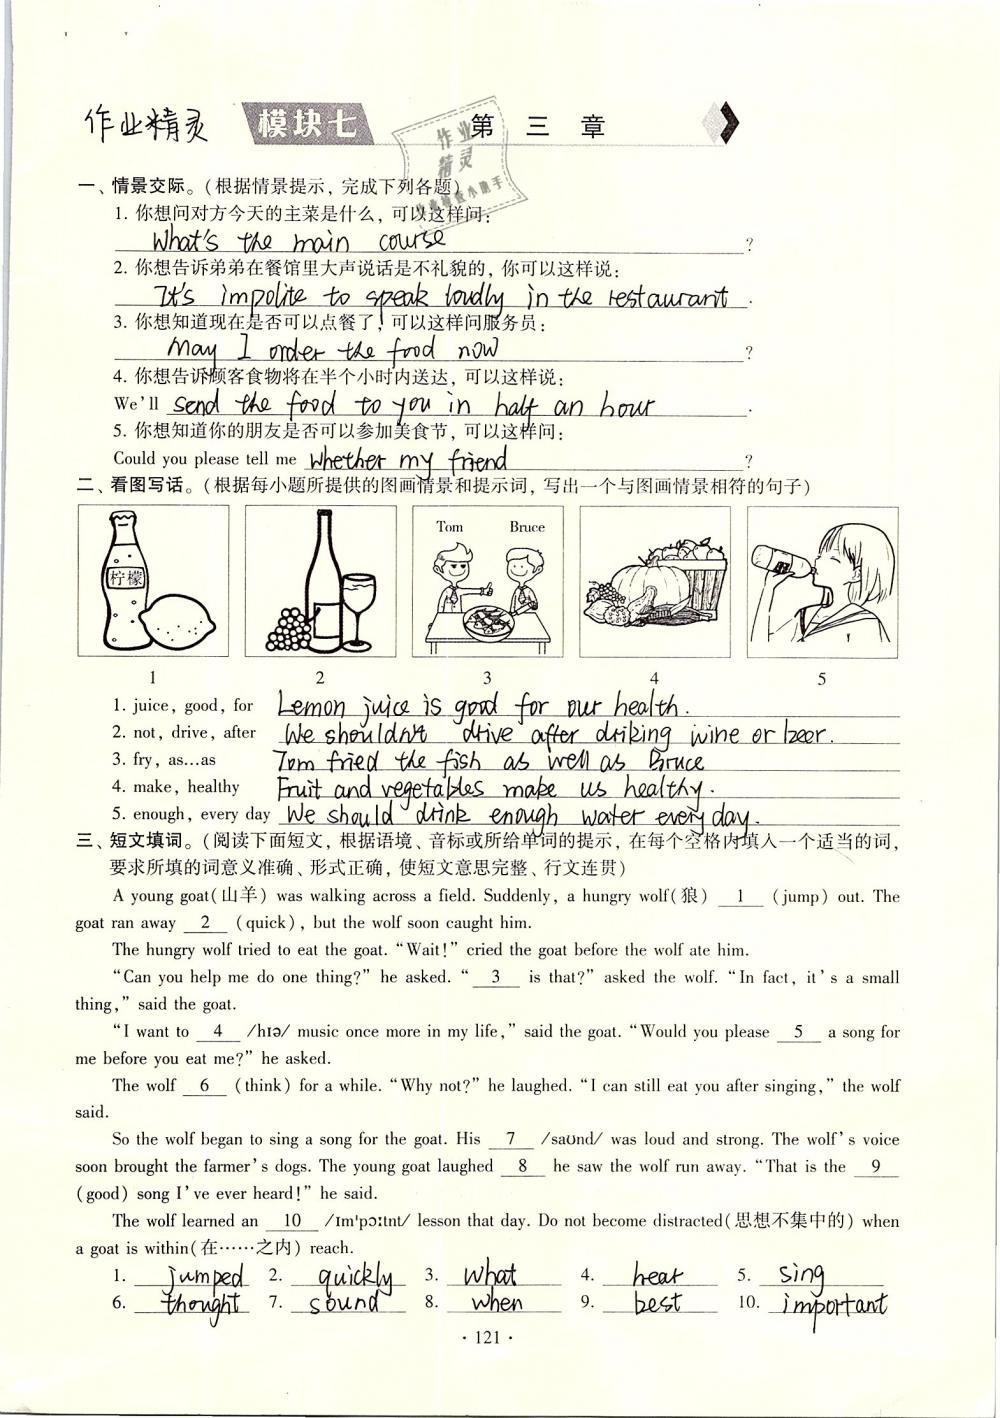 作业精灵 模块七 第三章
作业
精灵
作业检查小助手
一、情景交际。(根据情景提示,完成下列各题)
1. 你想问对方今天的主菜是什么,可以这样问:
What's the main course ?
2. 你想告诉弟弟在餐馆里大声说话是不礼貌的,你可以这样说:
It's impolite to speak loudly in the restaurant .
3. 你想知道现在是否可以点餐了,可以这样问服务员:
May I order the food now ?
4. 你想告诉顾客食物将在半个小时内送达,可以这样说:
We'll send the food to you in half an hour .
5. 你想知道你的朋友是否可以参加美食节,可以这样问:
Could you please tell me whether my friend ?
二、看图写话。(根据每小题所提供的图画情景和提示词,写出一个与图画情景相符的句子)
Tom Bruce
柠檬
1 2 3 4 5
1. juice, good, for Lemon juice is good for our health.
2. not, drive, after We shouldn't drive after driking wine or beer.
3. fry, as…as Tom fried the fish as well as Bruce
4. make, healthy Fruit and vegetables make us healthy.
5. enough, every day We should drink enough water every day.
三、短文填词。(阅读下面短文,根据语境、音标或所给单词的提示,在每个空格内填入一个适当的词,
要求所填的词意义准确、形式正确,使短文意思完整、行文连贯)
A young goat(山羊) was walking across a field. Suddenly, a hungry wolf(狼) 1 (jump) out. The
goat ran away 2 (quick), but the wolf soon caught him.
The hungry wolf tried to eat the goat. "Wait!" cried the goat before the wolf ate him.
"Can you help me do one thing?" he asked. " 3 is that?" asked the wolf. "In fact, it's a small
thing," said the goat.
"I want to 4 /hɪə/ music once more in my life," said the goat. "Would you please 5 a song for
me before you eat me?" he asked.
The wolf 6 (think) for a while. "Why not?" he laughed. "I can still eat you after singing," the wolf
said.
So the wolf began to sing a song for the goat. His 7 /saʊnd/ was loud and strong. The wolf's voice
soon brought the farmer's dogs. The young goat laughed 8 he saw the wolf run away. "That is the 9
(good) song I've ever heard!" he said.
The wolf learned an 10 /ɪm'pɔːtnt/ lesson that day. Do not become distracted(思想不集中的) when
a goat is within(在……之内) reach.
1. jumped 2. quickly 3. what 4. hear 5. sing
6. thought 7. sound 8. when 9. best 10. important
· 121 ·